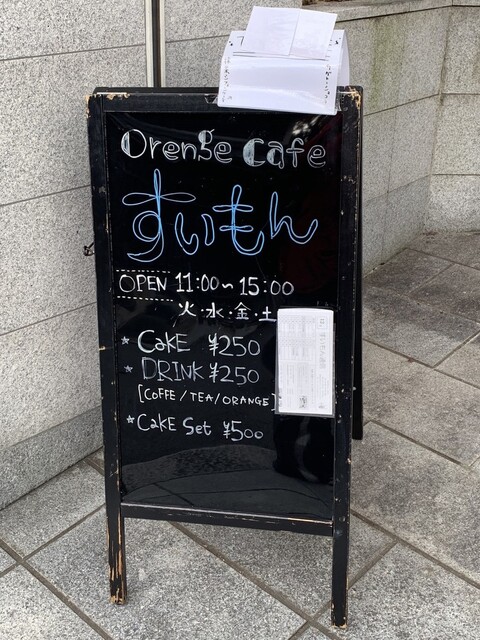 Orenge Cafe
すいもん
OPEN 11:00~15:00
火・水・金・土
* CAKE ¥250
* DRINK ¥250
[COFFE/TEA/ORANGE]
* CAKE Set ¥500